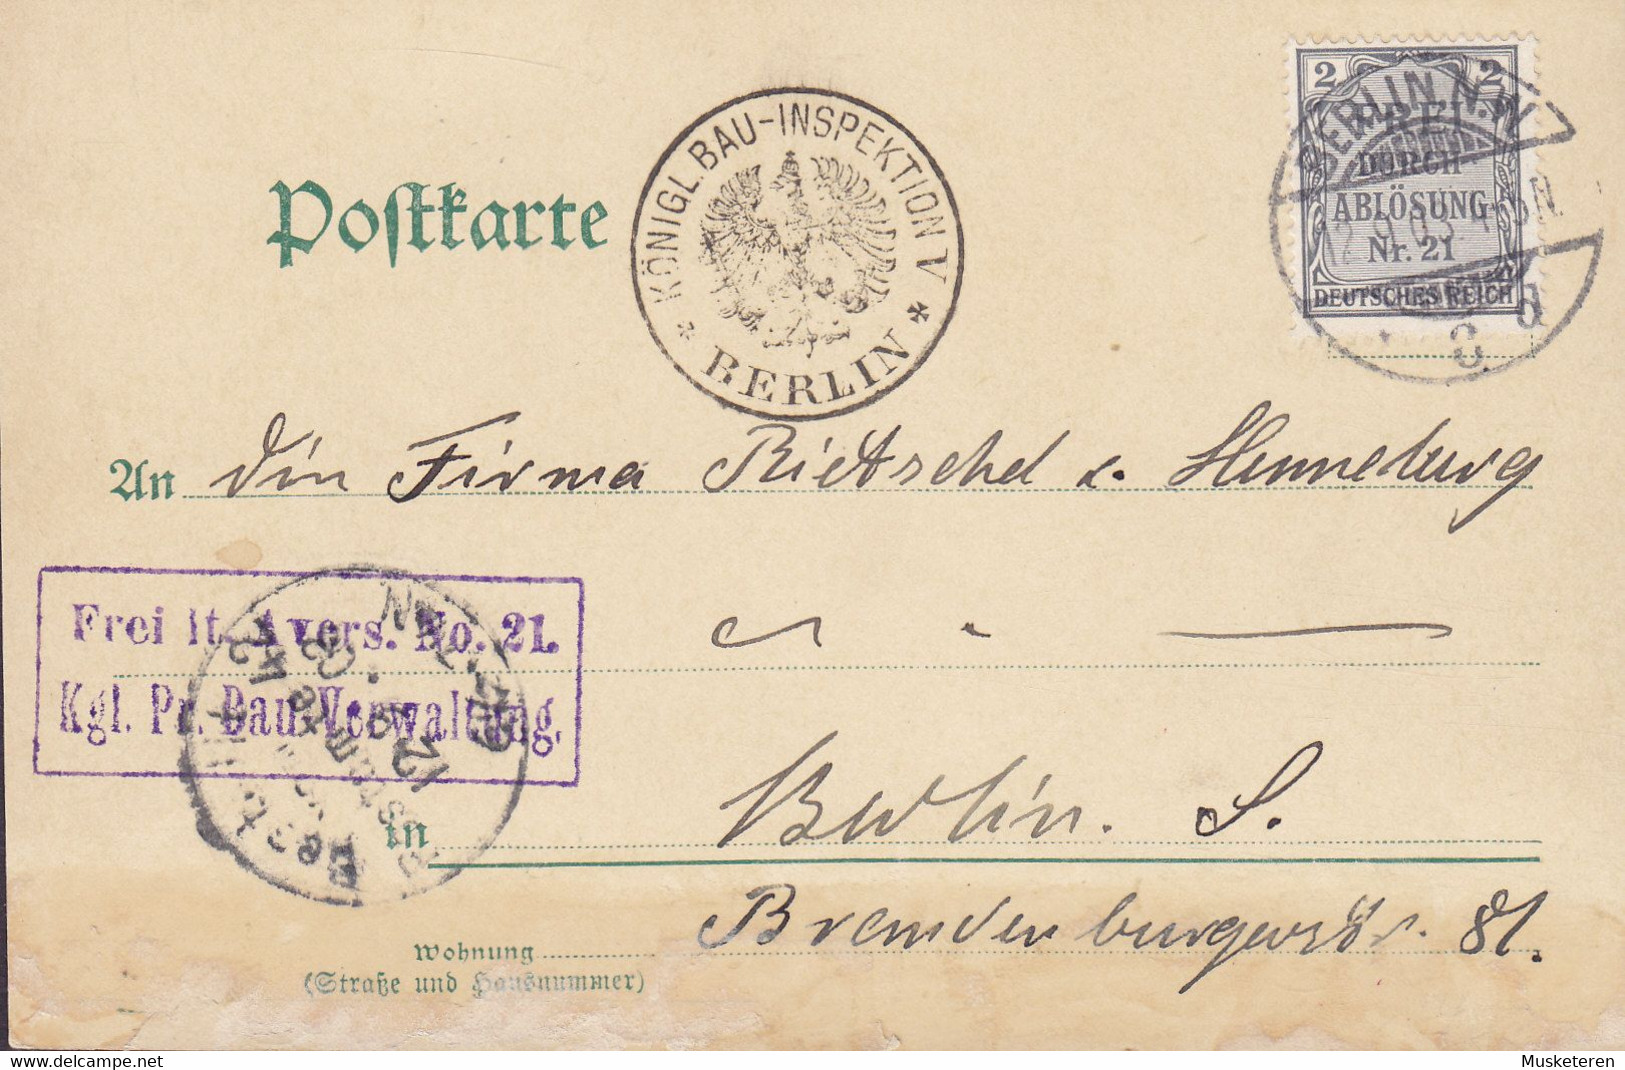 Postkarte
KÖNIGL. BAU-INSPEKTION V
* BERLIN *
2 2
FREI
DURCH
ABLÖSUNG
Nr. 21
DEUTSCHES REICH
BERLIN N.W.
12.9.03.
An die Firma Rietschel & Henneberg
Frei lt. Avers. No. 21.
Kgl. Pr. Bau-Verwaltung.
Bestellt
Postamte
12.9.03
in Berlin. S.
Brandenburgerstr. 81.
Wohnung
(Straße und Hausnummer)
Musketeren